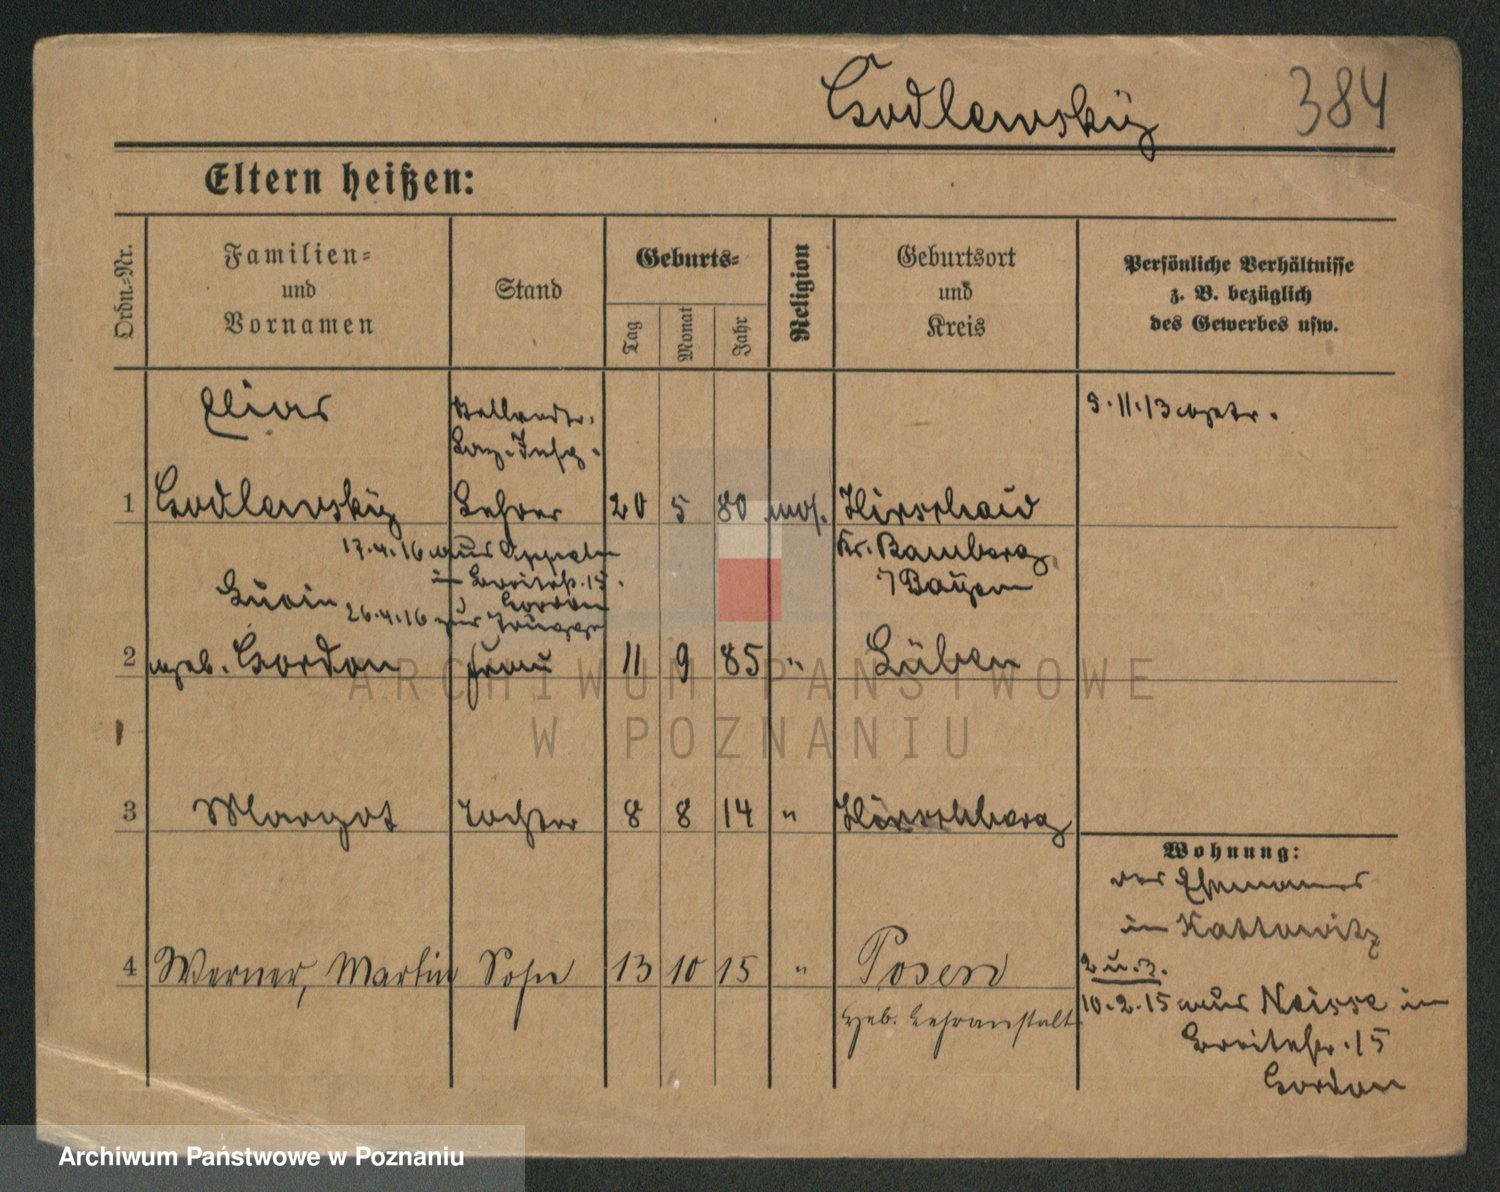 Godlewsky
384
Eltern heißen:
Ordn.-Nr.
Familien-
und
Vornamen
Stand
Geburts-
Tag
Monat
Jahr
Religion
Geburtsort
und
Kreis
Persönliche Verhältnisse
z. B. bezüglich
des Gewerbes usw.
Elias
Laz. Insp.
9.11.13
1 Godlewsky Lehrer 20 5 80 mos. Hirschaid
Kr. Bamberg
Bayern
17.4.16 aus
in Breitestr. 15
Gordon
26.4.16 zur Truppe
2 geb. Gordon Frau 11 9 85 " Lüben
3 Margot Tochter 8 8 14 " Hirschberg
Wohnung:
des Ehemannes
in Kattowitz
4 Werner, Martin Sohn 13 10 15 " Posen
Heb. Lehranstalt
2 u. 3.
10.2.15 aus Neisse in
Breitestr. 15
Gordon
ARCHIWUM PAŃSTWOWE
W POZNANIU
Archiwum Państwowe w Poznaniu